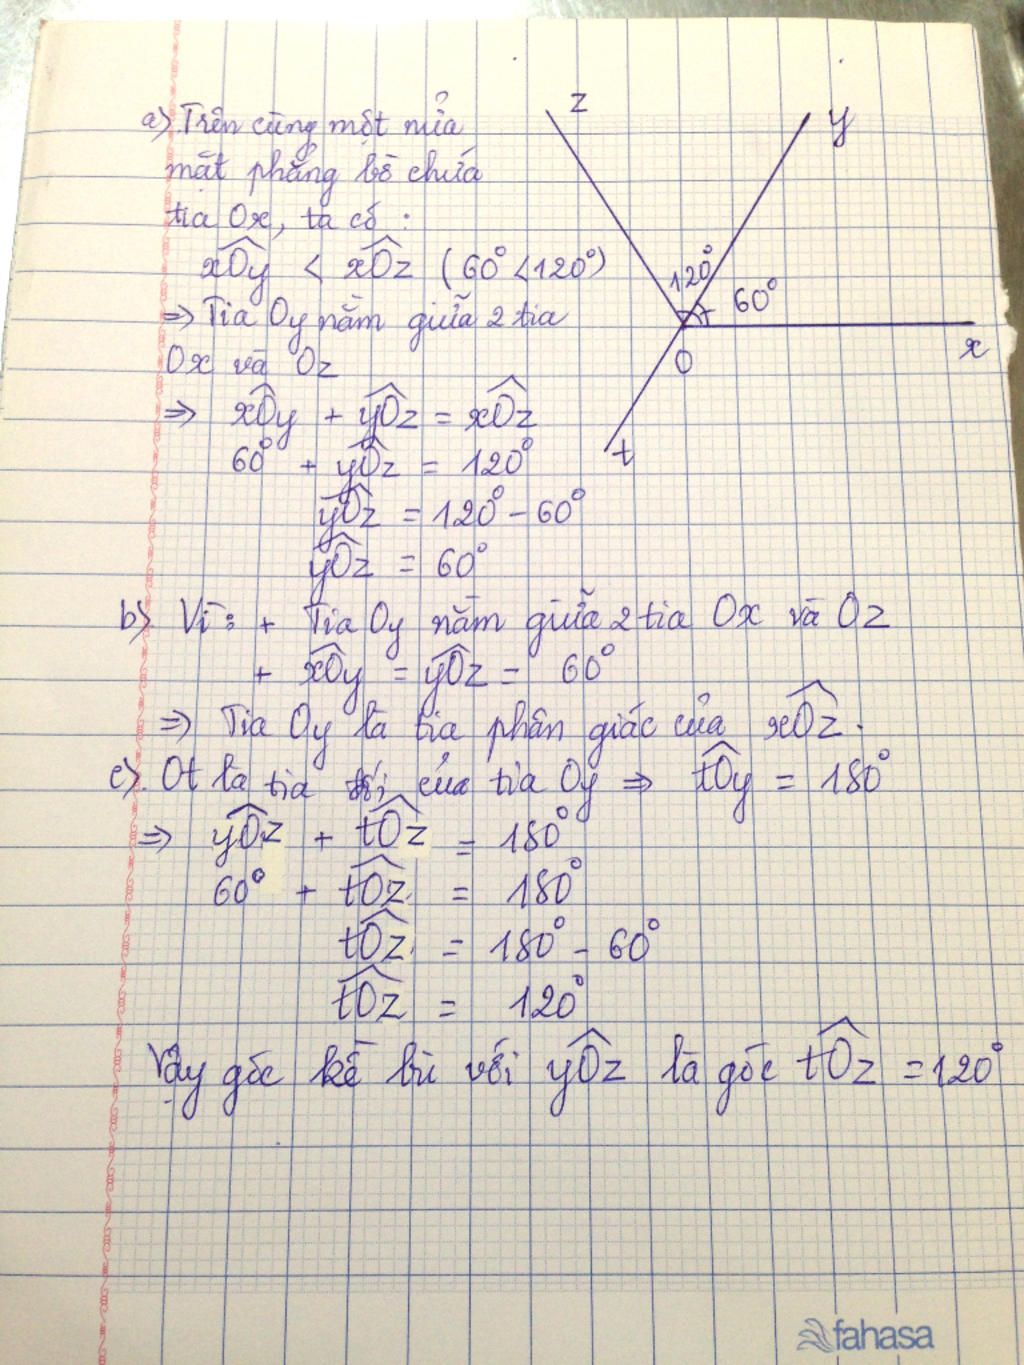 a) Trên cùng một nửa
mặt phẳng bờ chứa
tia Ox, ta có :
xÔy < xÔz (60° < 120°)
⇒ Tia Oy nằm giữa 2 tia
Ox và Oz
⇒ xÔy + yÔz = xÔz
60° + yÔz = 120°
yÔz = 120° - 60°
yÔz = 60°
z
y
120°
60°
x
O
t
b) Vì: + Tia Oy nằm giữa 2 tia Ox và Oz
+ xÔy = yÔz = 60°
⇒ Tia Oy là tia phân giác của xÔz.
c). Ot là tia đối của tia Oy ⇒ tÔy = 180°
⇒ yÔz + tÔz = 180°
60° + tÔz = 180°
tÔz = 180° - 60°
tÔz = 120°
Vậy góc kề bù với yÔz là góc tÔz = 120°
fahasa